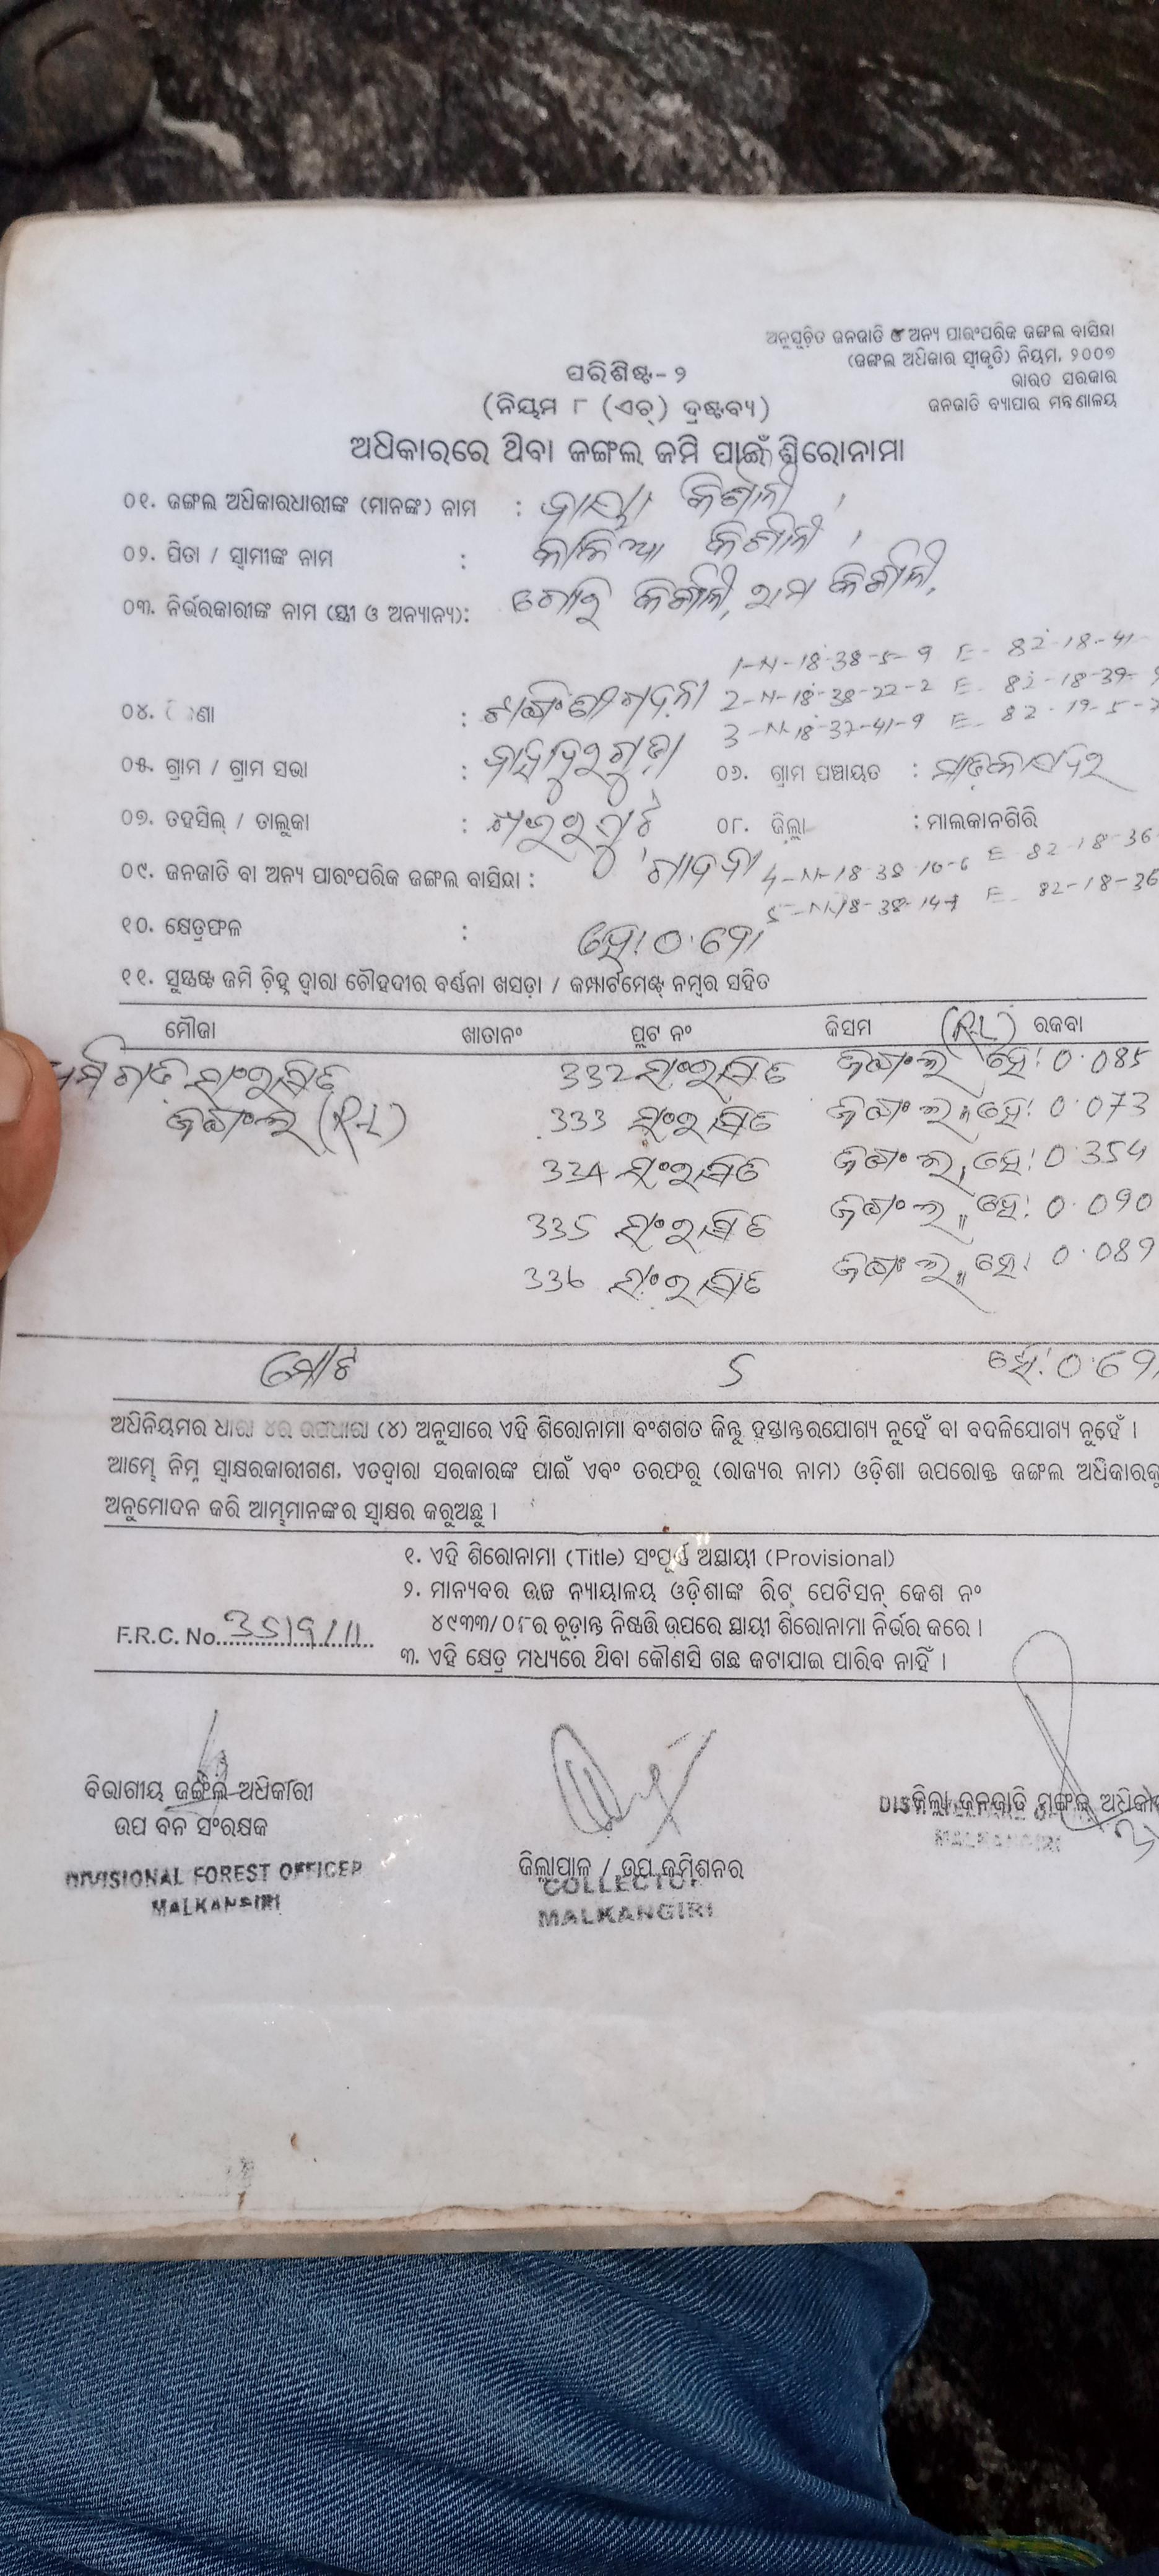 ଅନୁସୂଚିତ ଜନଜାତି ଓ ଅନ୍ୟ ପାରଂପରିକ ଜଙ୍ଗଲ ବାସିନ୍ଦା
(ଜଙ୍ଗଲ ଅଧିକାର ସ୍ୱୀକୃତି) ନିୟମ, ୨୦୦୭
ଭାରତ ସରକାର
ଜନଜାତି ବ୍ୟାପାର ମନ୍ତ୍ରଣାଳୟ
ପରିଶିଷ୍ଟ-୨
(ନିୟମ ୮ (ଏଚ୍) ଦ୍ରଷ୍ଟବ୍ୟ)
ଅଧିକାରରେ ଥିବା ଜଙ୍ଗଲ ଜମି ପାଇଁ ଶିରୋନାମା
୦୧. ଜଙ୍ଗଲ ଅଧିକାରଧାରୀଙ୍କ (ମାନଙ୍କ) ନାମ :
୦୨. ପିତା / ସ୍ୱାମୀଙ୍କ ନାମ :
୦୩. ନିର୍ଭରକାରୀଙ୍କ ନାମ (ସ୍ତ୍ରୀ ଓ ଅନ୍ୟାନ୍ୟ):
1-N-18-38-5-9 E- 82-18-41-
2-N-18-38-22-2 E- 82-18-39-
3-N-18-37-41-9 E- 82-19-5-
୦୪. :
୦୫. ଗ୍ରାମ / ଗ୍ରାମ ସଭା : ୦୬. ଗ୍ରାମ ପଞ୍ଚାୟତ :
୦୭. ତହସିଲ୍ / ତାଲୁକା : ୦୮. ଜିଲ୍ଲା : ମାଲକାନଗିରି
୦୯. ଜନଜାତି ବା ଅନ୍ୟ ପାରଂପରିକ ଜଙ୍ଗଲ ବାସିନ୍ଦା : 4-N-18-38-10-6 E- 82-18-36-
5-N-18-38-14- E- 82-18-36
୧୦. କ୍ଷେତ୍ରଫଳ : ହେ: ୦.୬୭୧
୧୧. ସୁସ୍ପଷ୍ଟ ଜମି ଚିହ୍ନ ଦ୍ୱାରା ଚୌହଦୀର ବର୍ଣ୍ଣନା ଖସଡ଼ା / କମ୍ପାର୍ଟମେଣ୍ଟ ନମ୍ବର ସହିତ
ମୌଜା ଖାତାନଂ ପ୍ଲଟ ନଂ କିସମ (R-L) ରକବା
ସଂରକ୍ଷିତ 332 ସଂରକ୍ଷିତ ଜଙ୍ଗଲ ହେ: 0.085
ଜଙ୍ଗଲ (R-L) 333 ସଂରକ୍ଷିତ ଜଙ୍ଗଲ ହେ: 0.073
334 ସଂରକ୍ଷିତ ଜଙ୍ଗଲ ହେ: 0.354
335 ସଂରକ୍ଷିତ ଜଙ୍ଗଲ ହେ: 0.090
336 ସଂରକ୍ଷିତ ଜଙ୍ଗଲ ହେ: 0.089
ମୋଟ 5 ହେ:
ଅଧିନିୟମର ଧାରା ୪ର ଉପଧାରା (୪) ଅନୁସାରେ ଏହି ଶିରୋନାମା ବଂଶଗତ କିନ୍ତୁ ହସ୍ତାନ୍ତରଯୋଗ୍ୟ ନୁହେଁ ବା ବଦଳିଯୋଗ୍ୟ ନୁହେଁ ।
ଆମ୍ଭେ ନିମ୍ନ ସ୍ୱାକ୍ଷରକାରୀଗଣ, ଏତଦ୍ୱାରା ସରକାରଙ୍କ ପାଇଁ ଏବଂ ତରଫରୁ (ରାଜ୍ୟର ନାମ) ଓଡ଼ିଶା ଉପରୋକ୍ତ ଜଙ୍ଗଲ ଅଧିକାରକୁ
ଅନୁମୋଦନ କରି ଆମ୍ଭମାନଙ୍କର ସ୍ୱାକ୍ଷର କରୁଅଛୁ ।
୧. ଏହି ଶିରୋନାମା (Title) ସଂପୂର୍ଣ୍ଣ ଅସ୍ଥାୟୀ (Provisional)
୨. ମାନ୍ୟବର ଉଚ୍ଚ ନ୍ୟାୟାଳୟ ଓଡ଼ିଶାଙ୍କ ରିଟ୍ ପେଟିସନ୍ କେଶ ନଂ
୪୯୩୩/୦୮ର ଚୂଡ଼ାନ୍ତ ନିଷ୍ପତ୍ତି ଉପରେ ସ୍ଥାୟୀ ଶିରୋନାମା ନିର୍ଭର କରେ ।
F.R.C. No. 3519/11
୩. ଏହି କ୍ଷେତ୍ର ମଧ୍ୟରେ ଥିବା କୌଣସି ଗଛ କଟାଯାଇ ପାରିବ ନାହିଁ ।
ବିଭାଗୀୟ ଜଙ୍ଗଲ ଅଧିକାରୀ
ଉପ ବନ ସଂରକ୍ଷକ
DIVISIONAL FOREST OFFICER
MALKANGIRI
ଜିଲ୍ଲାପାଳ / ଉପ କମିଶନର
COLLECTOR
MALKANGIRI
ଜିଲ୍ଲା ଜନଜାତି ମଙ୍ଗଳ ଅଧିକାରୀ
MALKANGIRI